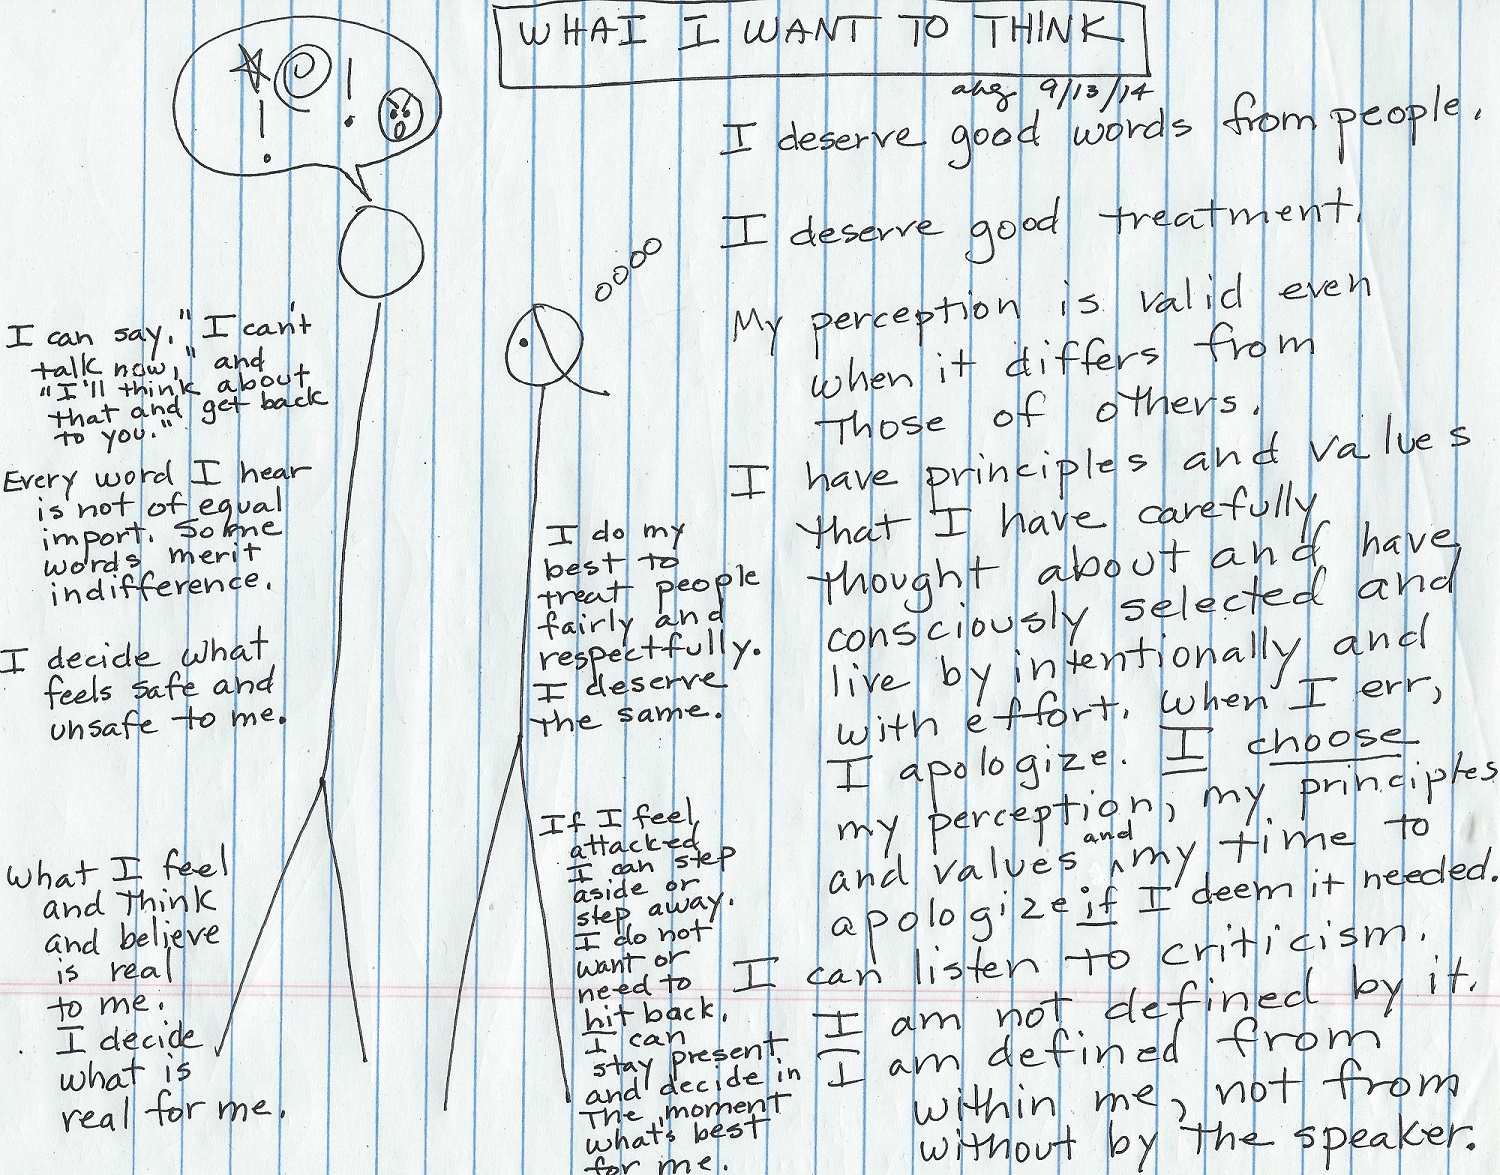 WHAT I WANT TO THINK
ahg 9/13/14
I deserve good words from people.
I deserve good treatment.
My perception is valid even
when it differs from
those of others.
I have principles and values
that I have carefully
thought about and have
consciously selected and
live by intentionally and
with effort. When I err,
I apologize. I choose
my perception, my principles
and values and my time to
apologize if I deem it needed.
I can listen to criticism.
I am not defined by it.
I am defined from
within me, not from
without by the speaker.
I can say, "I can't
talk now," and
"I'll think about
that and get back
to you."
Every word I hear
is not of equal
import. Some
words merit
indifference.
I decide what
feels safe and
unsafe to me.
What I feel
and think
and believe
is real
to me.
I decide
what is
real for me.
I do my
best to
treat people
fairly and
respectfully.
I deserve
the same.
If I feel
attacked
I can step
aside or
step away.
I do not
want or
need to
hit back.
I can
stay present
and decide in
the moment
what's best
for me.